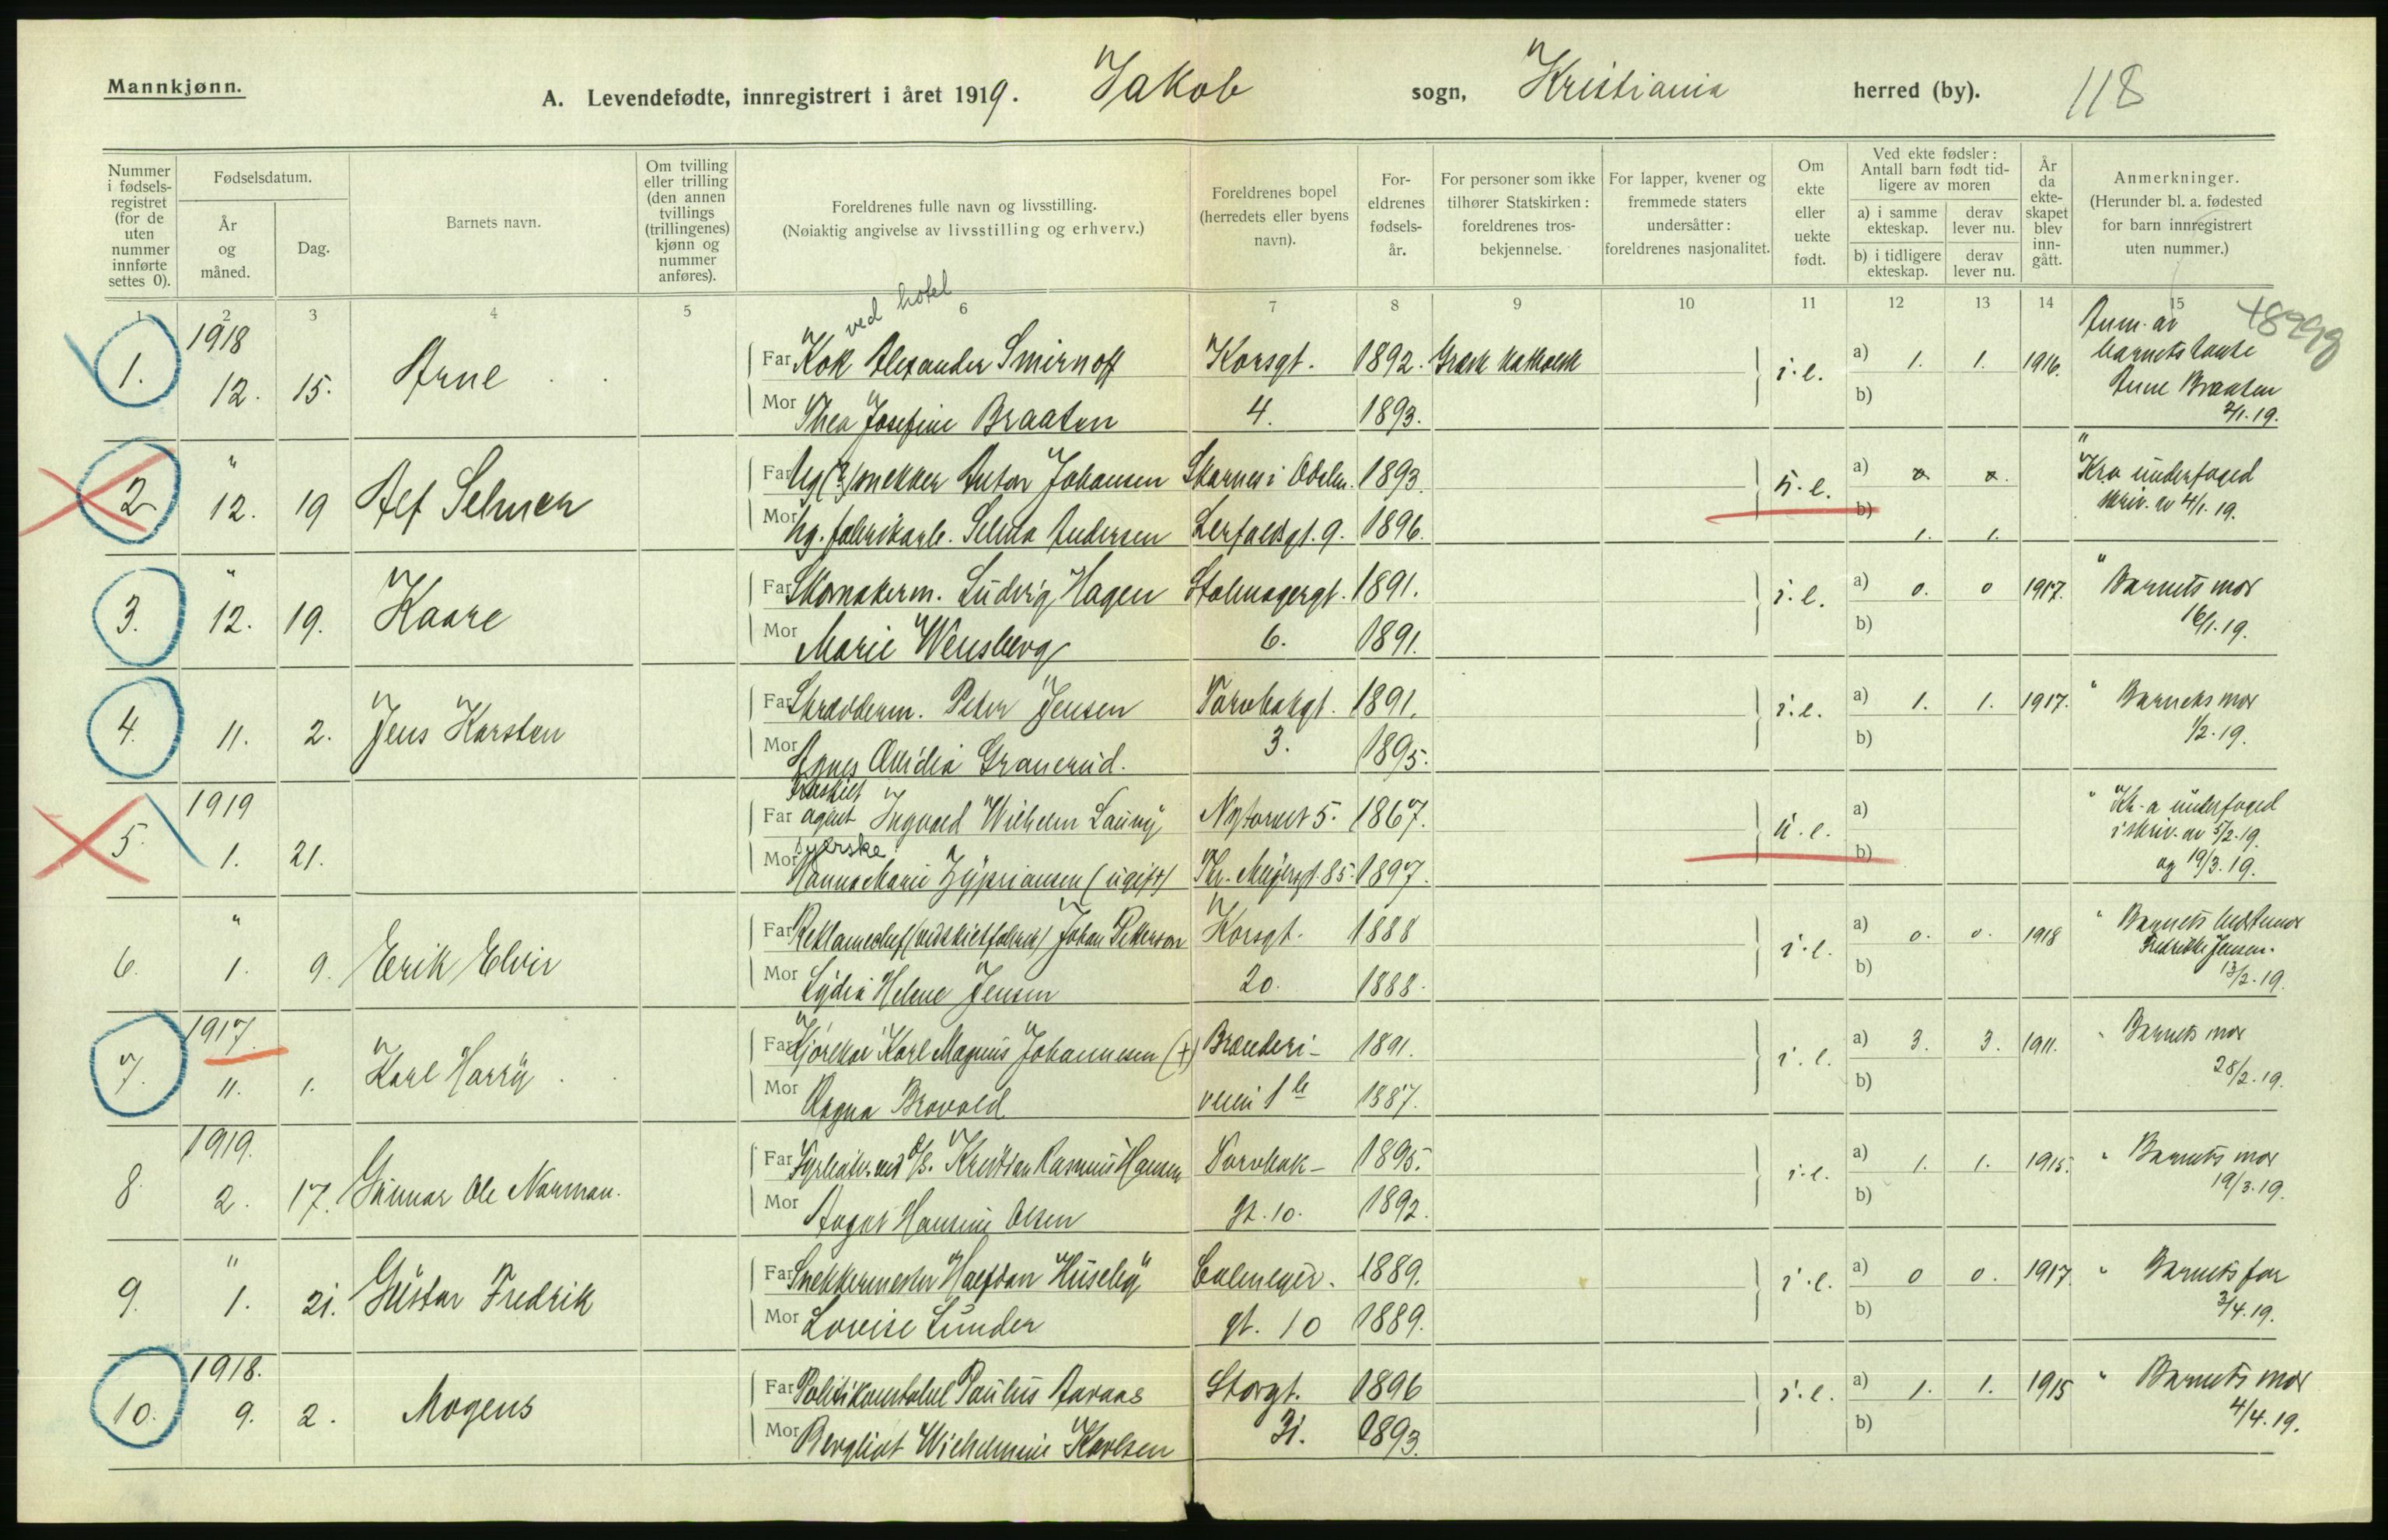 Mannkjønn.
A. Levendefødte, innregistrert i året 1919. Jakob sogn, Kristiania herred (by). 118
Nummer i fødsels-registret (for de uten nummer innførte settes 0).
Fødselsdatum.
År og måned.
Dag.
Barnets navn.
Om tvilling eller trilling (den annen tvillings (trillingenes) kjønn og nummer anføres).
Foreldrenes fulle navn og livsstilling.
(Nøiaktig angivelse av livsstilling og erhverv.)
Foreldrenes bopel (herredets eller byens navn).
For-eldrenes fødsels-år.
For personer som ikke tilhører Statskirken: foreldrenes tros-bekjennelse.
For lapper, kvener og fremmede staters undersåtter: foreldrenes nasjonalitet.
Om ekte eller uekte født.
Ved ekte fødsler: Antall barn født tid-ligere av moren
a) i samme ekteskap.
derav lever nu.
b) i tidligere ekteskap.
derav lever nu.
År da ekte-skapet blev inn-gått.
Anmerkninger.
(Herunder bl. a. fødested for barn innregistrert uten nummer.)
1 2 3 4 5 6 7 8 9 10 11 12 13 14 15
ved hotel
1. 1918 12. 15. Arne Far Kok Alexander Smirnoff Korsgt. 1892. Græsk katholsk i.e. a) 1. 1. 1916. Anm. av barnets tante
Mor Thea Josefine Braaten 4. 1893. b) Braaten 2/1.19.
2 " 12. 19 Alf Selmer Far Ug(?) snekker Anton Johansen Skarnes i Odalen. 1893. u.e. a) x x. " Kra underfoged
Mor ug. fabrikarb. Selma Andersen Lerfaldsgt. 9. 1896. b) 1. 1. skriv. av 4/1.19.
3. " 12. 19. Kaare Far Skomakerm. Ludvig Hagen Stolmagergt. 1891. i.e. a) 0. 0 1917. " Barnets mor
Mor Marie Wensberg 6. 1891. b) 16/1.19.
4. 11. 2. Jens Karsten Far Skrædderm. Peter Jensen Torvbakgt. 1891. i.e. a) 1. 1. 1917. " Barnets mor
Mor Agnes Granerud. 3. 1895. b) 1/2.19.
5. 1919 1. 21. Far agent Ingvald Wilhelm Nytorvet 5. 1867. u.e. a) " Kr-a underfoged
syerske i skriv. av 5/2.19.
Mor Hanna Marie Zypriansen (ugift) Th. Meyersgt. 85. 1897. b) og 19/3.19.
6. " 1. 9. Erik Elvir Far Reklamechef Johan Petterson Korsgt. 1888 i.e. a) 0. 0. 1918 " Barnets
Mor Lydia Helene Jensen 20. 1888. b) Fredrikke Jensen. 13/2.19.
7. 1917. 11. 1. Karl Harry Far Kjørekar Karl Magnus Johannesen (+) Brænderi- 1891. i.e. a) 3. 3. 1911. " Barnets mor
Mor Ragna Bravold veien 1 b 1887. b) 28/2.19.
8. 1919. 2. 17. Gunnar Ole Norman. Far Fyrbøter ved D/S. Kristian Rasmus Hansen Torvbak- 1895. i.e. a) 1. 1. 1915. " Barnets mor
Mor Hansine Olsen gt. 10. 1892. b) 19/3.19.
9. " 1. 21. Gustav Fredrik Far Snekkermester Halfdan Huseby Calmeyer. 1889. i.e. a) 0 0. 1917. " Barnets far
Mor Lovise Lunder gt. 10 1889. b) 3/4.19.
10. 1918. 9. 2. Mogens Far Politikonstabel Paulus Aaraas Storgt. 1896 i.e. a) 1. 1. 1915 " Barnets mor
Mor Bergliot Wilhelmine Karlsen 31. 1893. b) 4/4.19.